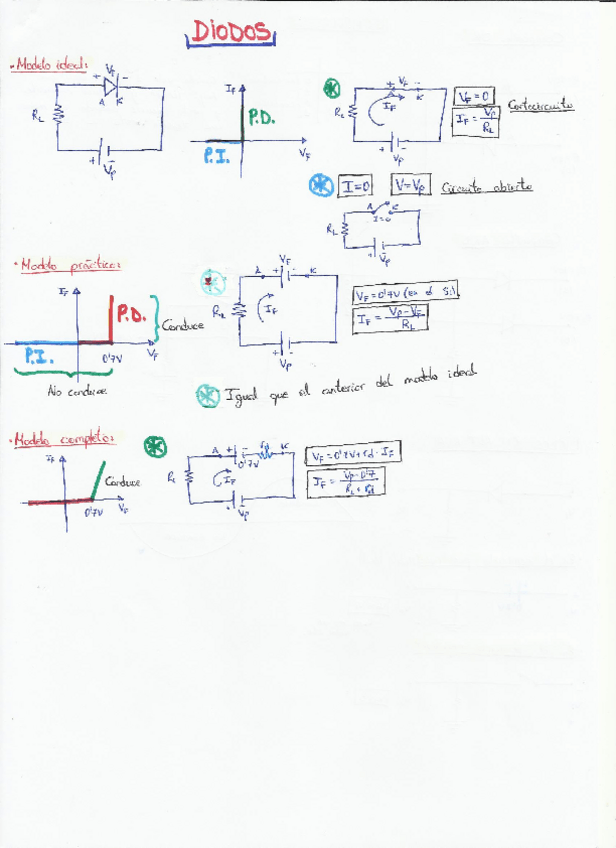 DIODOS
• Modelo ideal:
VF
+ -
A K
RL
+ -
VP
IF
P.D.
P.I.
VF
+ VF -
A K
RL
IF
+ -
VP
VF = 0
IF = VP / RL
Cortocircuito
I = 0
V = VP
Circuito abierto
A K
I = 0
RL
+ -
VP
• Modelo práctico:
IF
P.D.
Conduce
P.I.
0'7V
VF
No conduce
VF
A + - K
RL
IF
+ -
VP
VF = 0'7V (en el Si)
IF = VP - VF / RL
Igual que el anterior del modelo ideal
• Modelo completo:
IF
Conduce
0'7V
VF
A + - rd K
0'7V
RL
IF
+ -
VP
VF = 0'7V + rd · IF
IF = VP - 0'7 / RL + rd